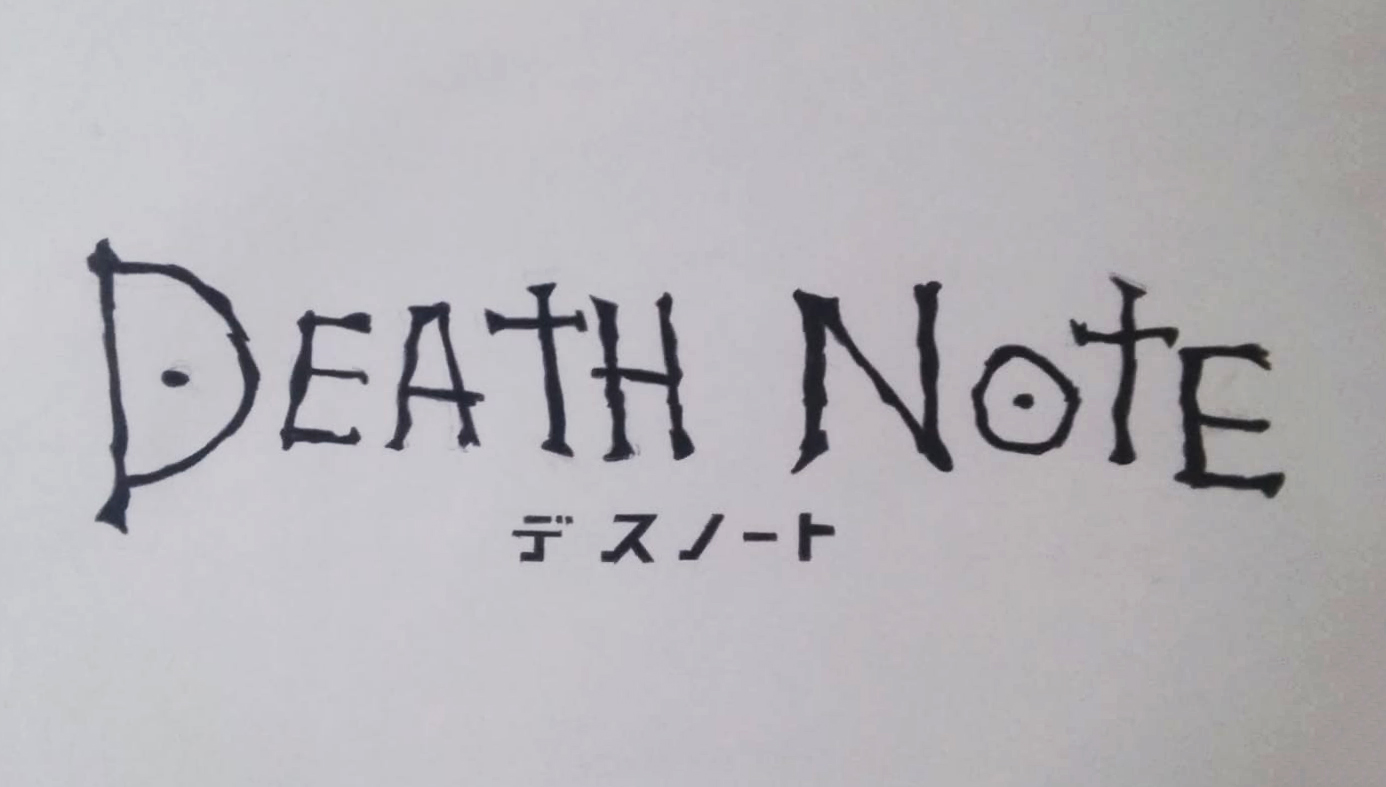 DEATH NOTE
デスノート